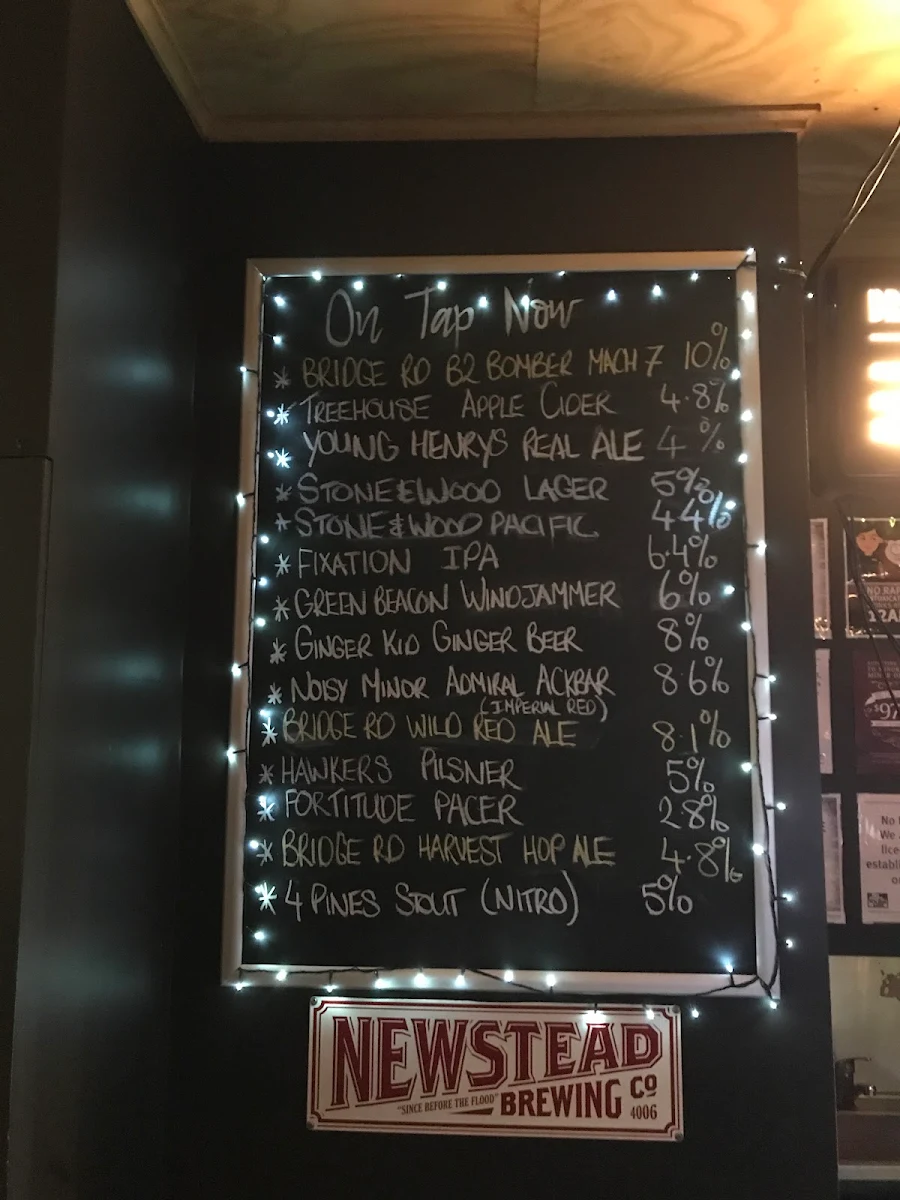 On Tap Now
* BRIDGE RD B2 BOMBER MACH 7 10%
* TREEHOUSE APPLE CIDER 4.8%
* YOUNG HENRYS REAL ALE 4 %
* STONE & WOOD LAGER 5%
* STONE & WOOD PACIFIC 4.4%
* FIXATION IPA 6.4%
* GREEN BEACON WINDJAMMER 6%
* GINGER KID GINGER BEER 8%
* NOISY MINOR ADMIRAL ACKBAR 8.6%
(IMPERIAL RED)
* BRIDGE RD WILD RED ALE 8.1%
* HAWKERS PILSNER 5%
* FORTITUDE PACER 2.8%
* BRIDGE RD HARVEST HOP ALE 4.8%
* 4 PINES STOUT (NITRO) 5%
NEWSTEAD
"SINCE BEFORE THE FLOOD" BREWING CO
4006